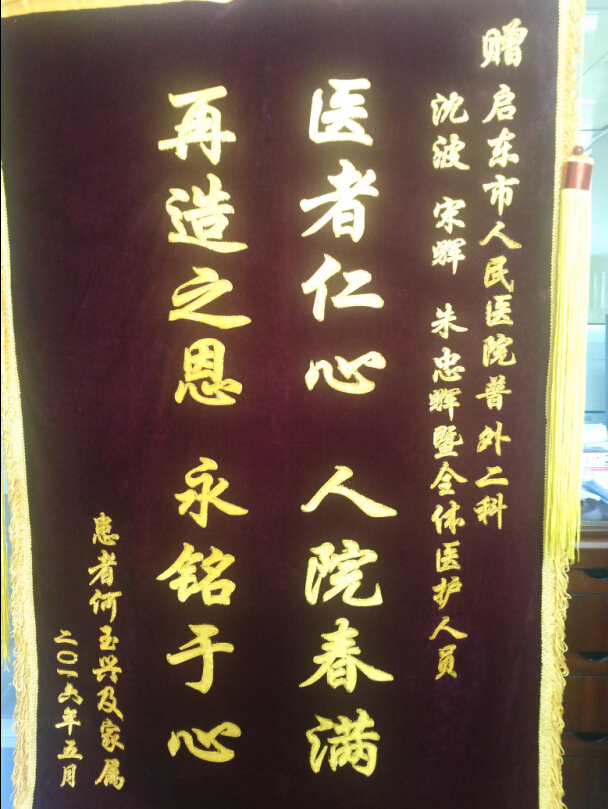 赠 启东市人民医院普外二科
沈波 宋辉 朱忠辉暨全体医护人员
医者仁心 人院春满
再造之恩 永铭于心
患者何玉兴及家属
二〇一六年五月